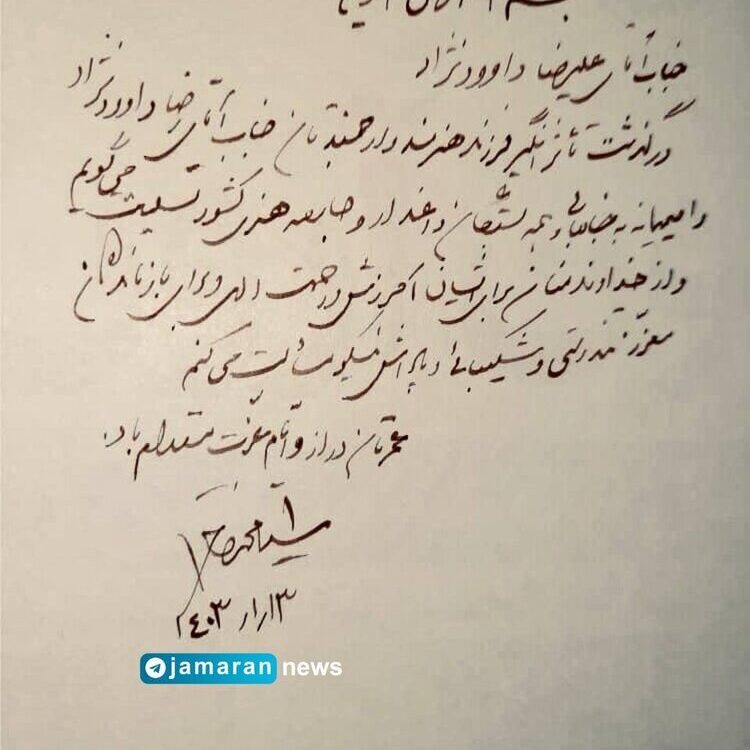 بسم الله الرحمن الرحیم
جناب آقای علیرضا داوودنژاد
درگذشت تأثرانگیز فرزند هنرمند و ارجمندتان جناب آقای رضا داوودنژاد
را صمیمانه به جنابعالی و همه بستگان داغدار و جامعه هنری کشور تسلیت می‌گویم
و از خداوند منان برای ایشان آمرزش و رحمت الهی و برای بازماندگان
معزز تندرستی و شکیبایی و پاداش نیکو مسألت می‌کنم
عمرتان دراز و ایام عزت مستدام باد.
سید محمد خاتمی
۱۳/۱/۱۴۰۳
jamaran news